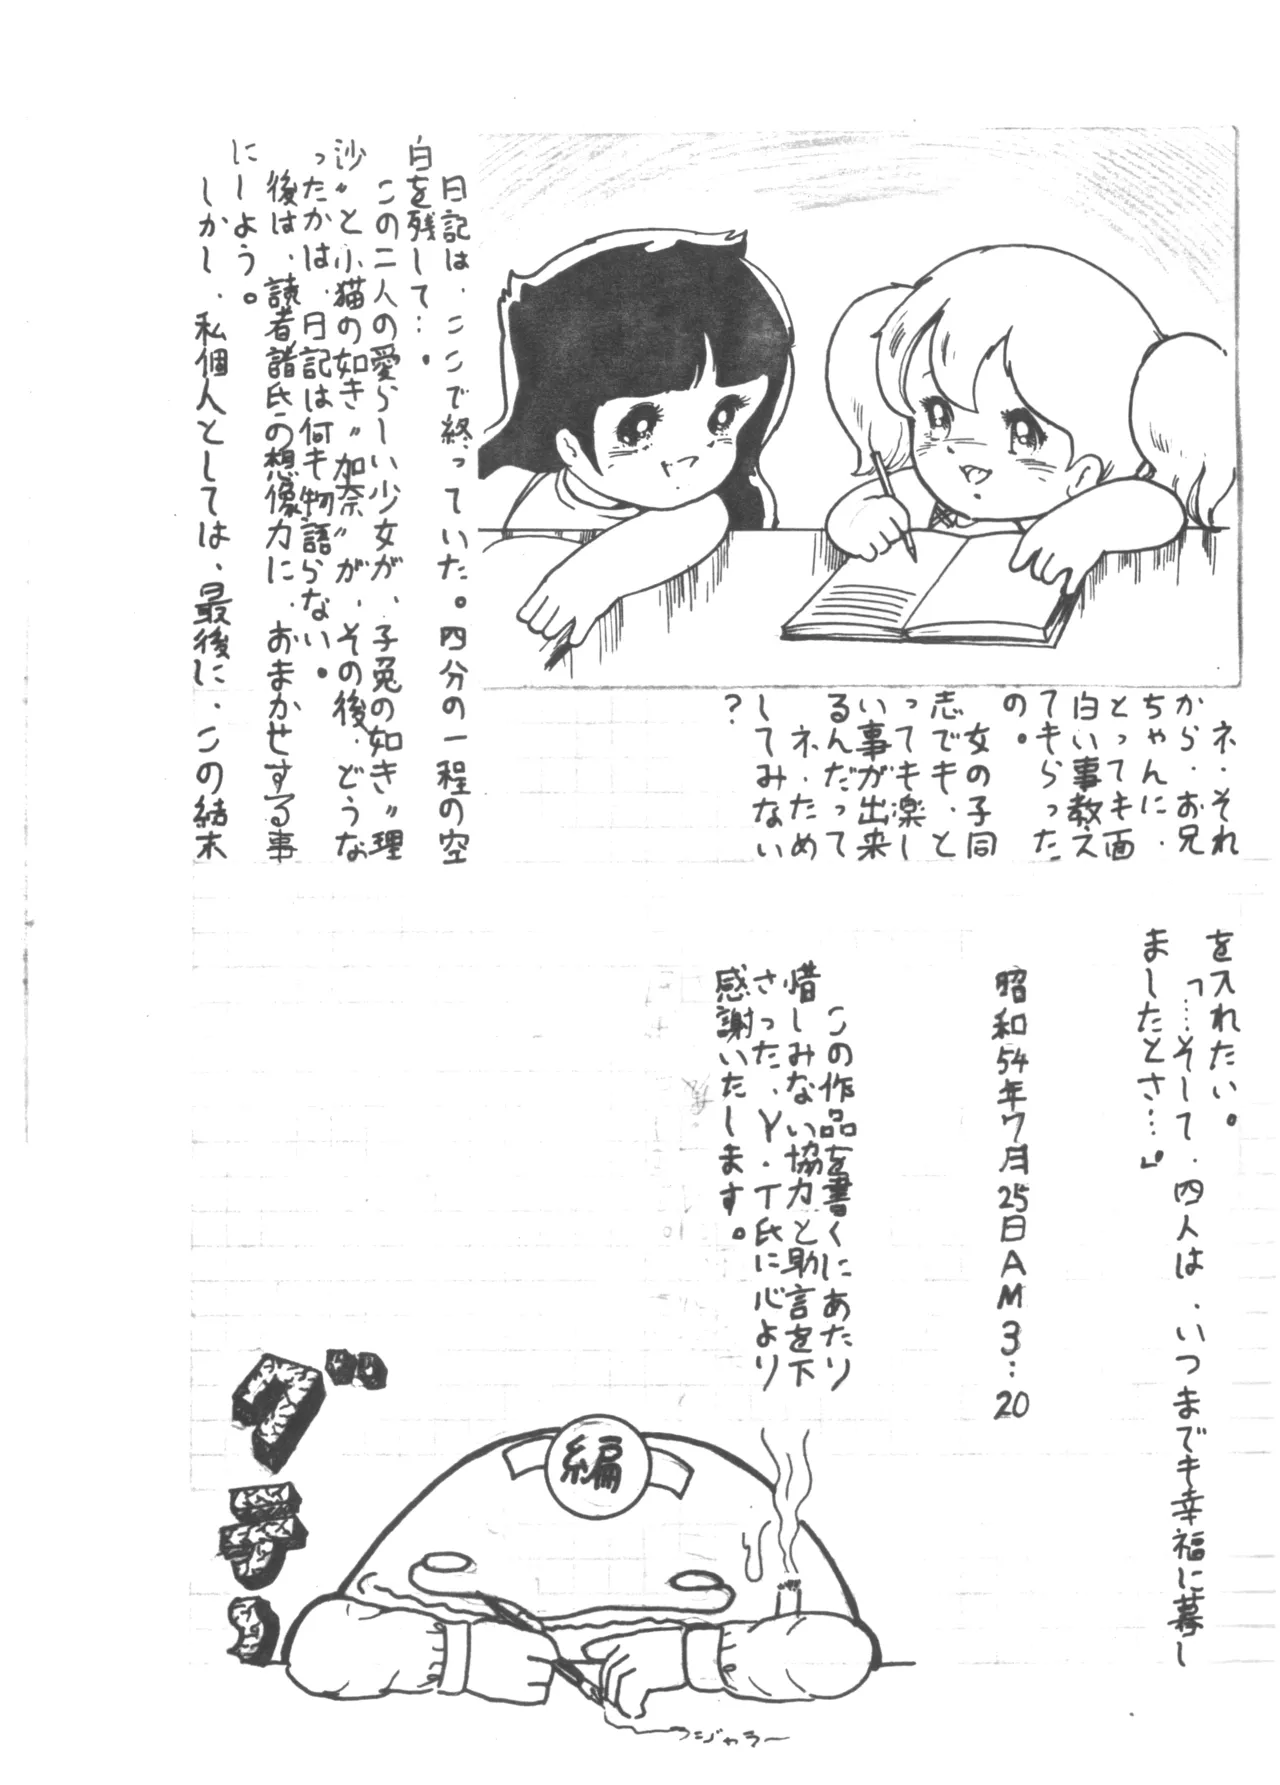 ネ・それ
から・お兄
ちゃんに・
とっても面
白い事教え
てもらった
の。
女の子同
志でも、と
っても楽し
い事が出来
るんだって
ネ・ため
してみない
?
日記は、ここで終っていた。四分の一程の空
白を残して…。
この二人の愛らしい少女が、子兎の如き〃理
沙〃と小猫の如き〃加奈〃が、その後、どうな
ったかは、日記は何も物語らない。
後は、読者諸氏の想像力に、おまかせする事
にしよう。
しかし、私個人としては、最後に、この結末
を入れたい。
「……そして、四人は、いつまでも幸福に暮し
ましたとさ…。」
昭和54年7月25日AM3:20
この作品を書くにあたり
惜しみない協力と助言を下
さった、Y・T氏に心より
感謝いたします。
編